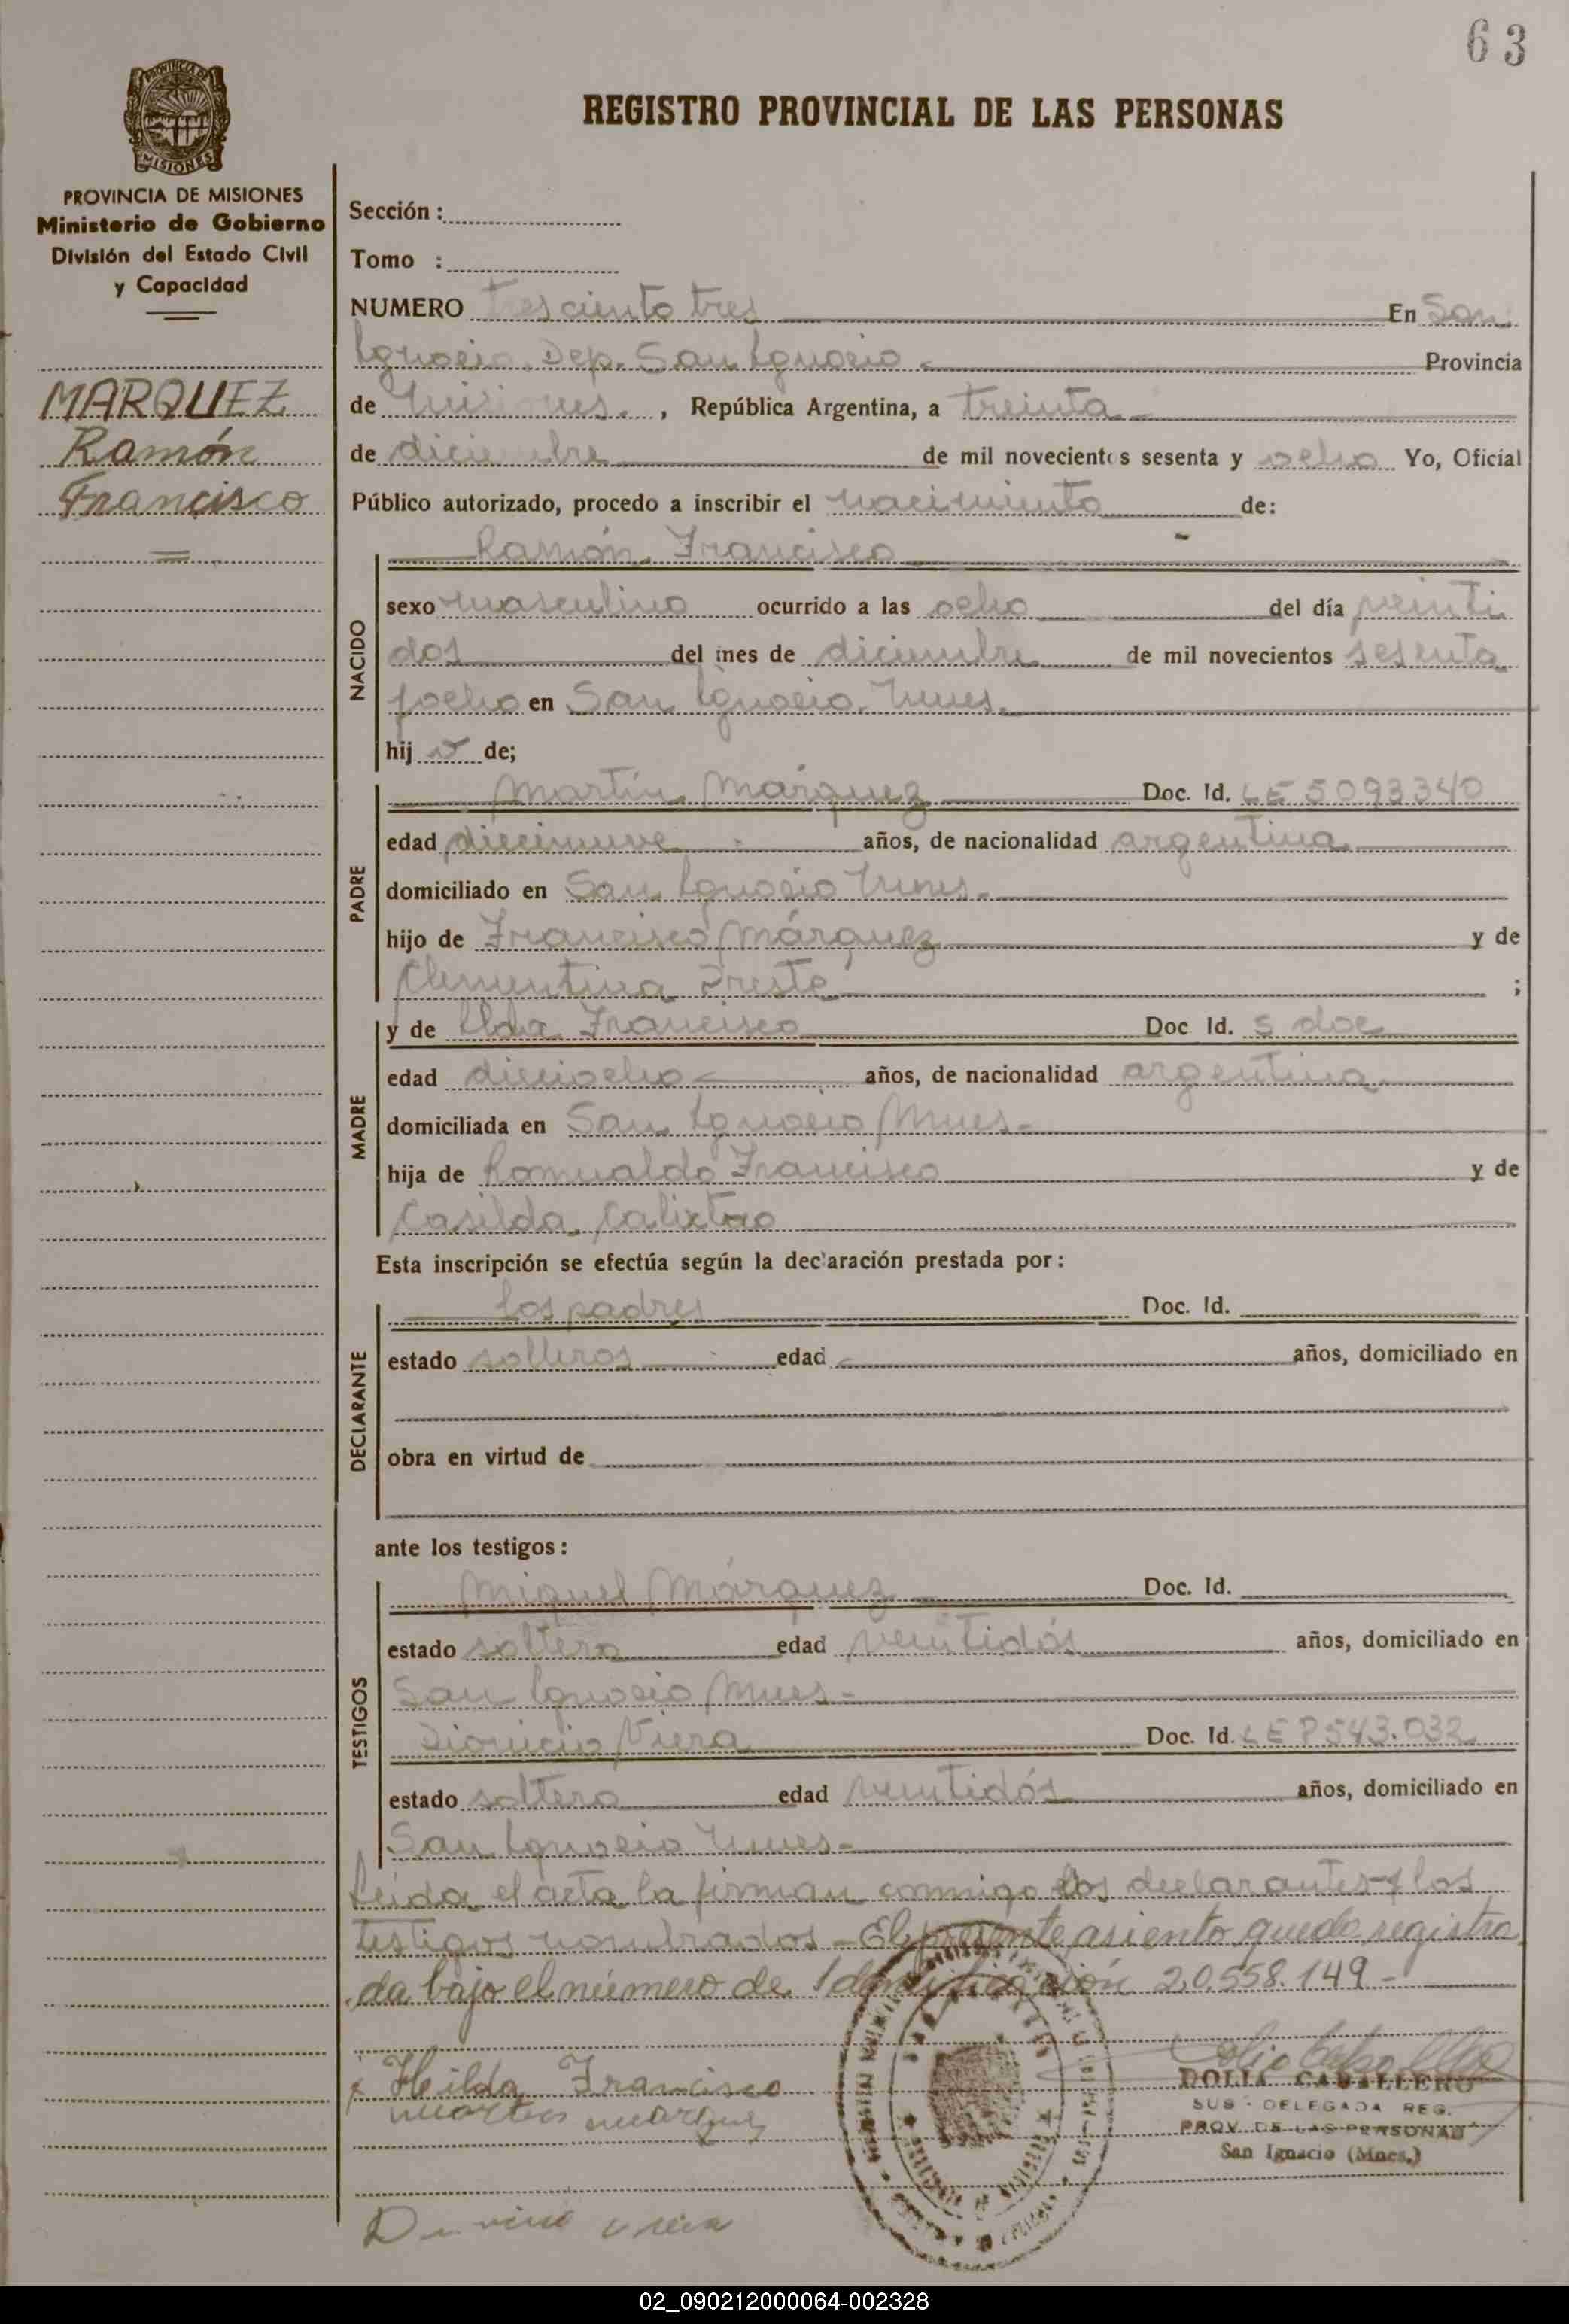 63
REGISTRO PROVINCIAL DE LAS PERSONAS
PROVINCIA DE
MISIONES
PROVINCIA DE MISIONES
Ministerio de Gobierno
División del Estado Civil
y Capacidad
MARQUEZ
Ramón
Francisco
Sección :
Tomo :
NUMERO Tresciento tres En San
Ignacio, Dep. San Ignacio Provincia
de Misiones , República Argentina, a treinta
de diciembre de mil novecientos sesenta y ocho Yo, Oficial
Público autorizado, procedo a inscribir el nacimiento de:
NACIDO
Ramón Francisco
sexo masculino ocurrido a las ocho del día veinti
dos del mes de diciembre de mil novecientos sesenta
y ocho en San Ignacio Mnes.
hijo de;
PADRE
Martín Márquez Doc. Id. LE 5093340
edad diecinueve años, de nacionalidad argentina
domiciliado en San Ignacio Mnes.
hijo de Francisco Márquez y de
Clementina ;
MADRE
y de Ilda Francisco Doc Id. s doc
edad dieciocho años, de nacionalidad argentina
domiciliada en San Ignacio Mnes.
hija de Romualdo Francisco y de
Casilda
Esta inscripción se efectúa según la declaración prestada por:
DECLARANTE
los padres Doc. Id.
estado solteros edad años, domiciliado en
obra en virtud de
ante los testigos:
TESTIGOS
Miguel Márquez Doc. Id.
estado soltero edad veintidós años, domiciliado en
San Ignacio Mnes.
Dionicio Viera Doc. Id. LE 543.032
estado soltero edad veintidós años, domiciliado en
San Ignacio Mnes.
Leida el acta la firman conmigo los declarantes y los
testigos nombrados - El presente asiento queda registra
da bajo el número de Identificación 20.558.149 -
x Hilda Francisco
martin marquez
DOLIA CABALLERO
SUB - DELEGADA REG.
PROV. DE LAS PERSONAS
San Ignacio (Mnes.)
02_090212000064-002328